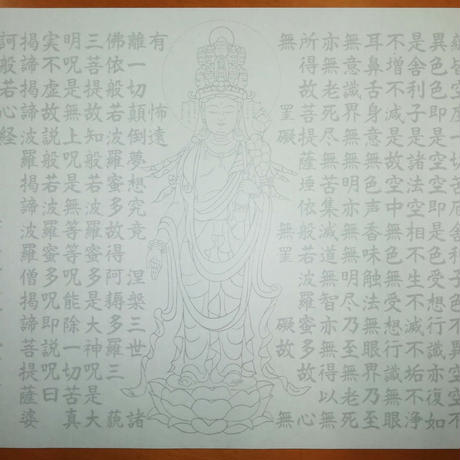 蘊皆空度一切苦厄舎利子色不異空空不
異色色即是空空即是色受想行識亦復如
是舎利子是諸法空相不生不滅不垢不浄
不増不減是故空中無色無受想行識無眼
耳鼻舌身意無色声香味触法無眼界乃至
無意識界無無明亦無無明尽乃至無老死
亦無老死尽無苦集滅道無智亦無得以無
所得故菩提薩埵依般若波羅蜜多故心
無罣礙無罣礙故無
有怖遠
離一切顛倒夢想究竟涅槃三世諸
佛依般若波羅蜜多故得阿耨多羅三藐
三菩提故知般若波羅蜜多是大神呪是大
明呪是無上呪是無等等呪能除一切苦真
実不虚故説般若波羅蜜多呪即説呪曰
揭諦揭諦波羅揭諦波羅僧揭諦菩提薩婆
訶般若心経